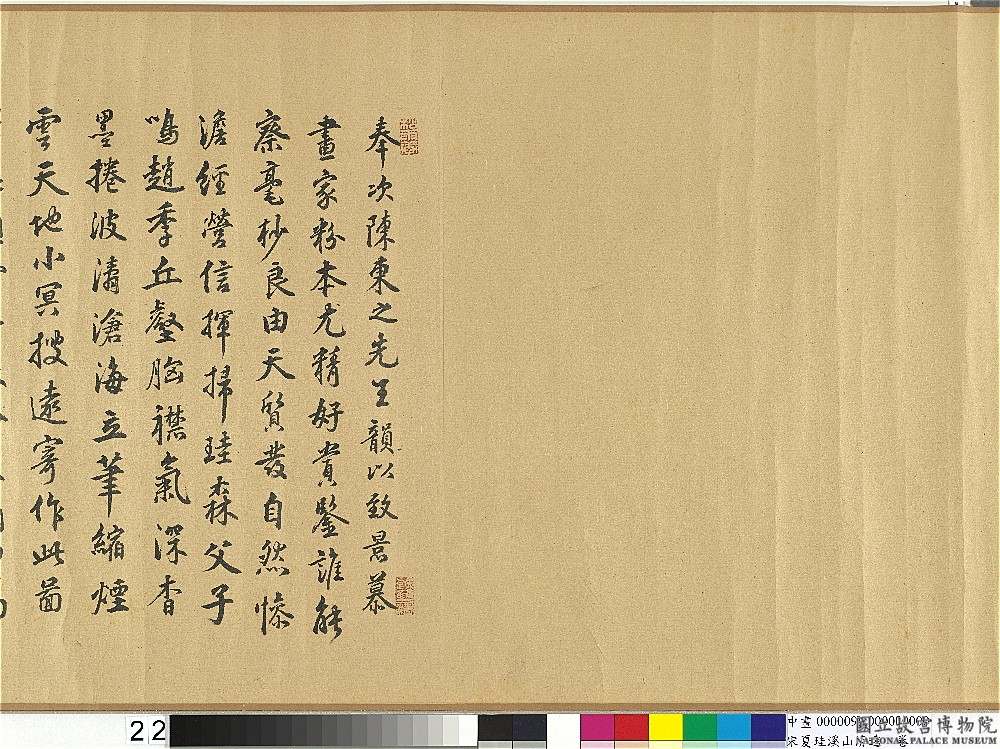 奉次陳東之先生韻以致景慕
畫家粉本尤稱好賞鑒誰能
察毫杪良由天質發自然慘
澹經營信揮掃珪森父子
鳴趙季丘壑胸襟氣深杳
墨捲波濤滄海立筆縮煙
雲天地小冥搜遠寄作此啚
22
國立故宮博物院
NATIONAL PALACE MUSEUM